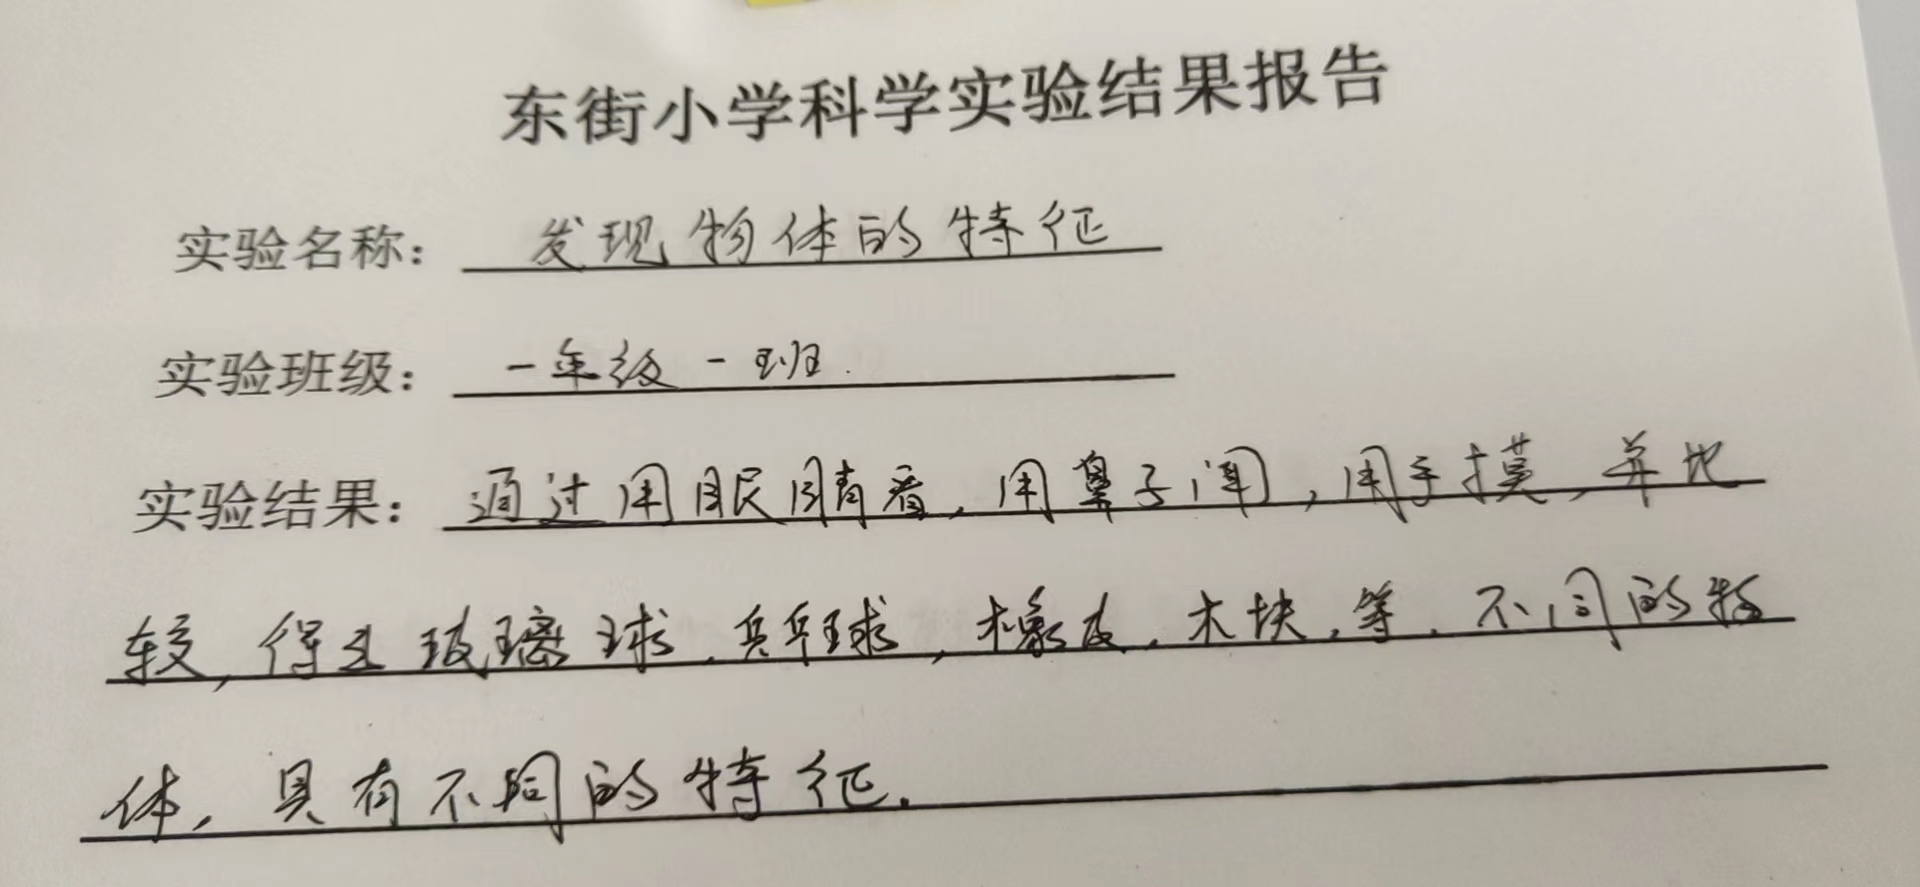 东街小学科学实验结果报告
实验名称：发现物体的特征
实验班级：一年级一班.
实验结果：通过用眼睛看，用鼻子闻，用手摸，并比
较，得出玻璃球，乒乓球，橡皮，木块，等，不同的物
体，具有不同的特征.